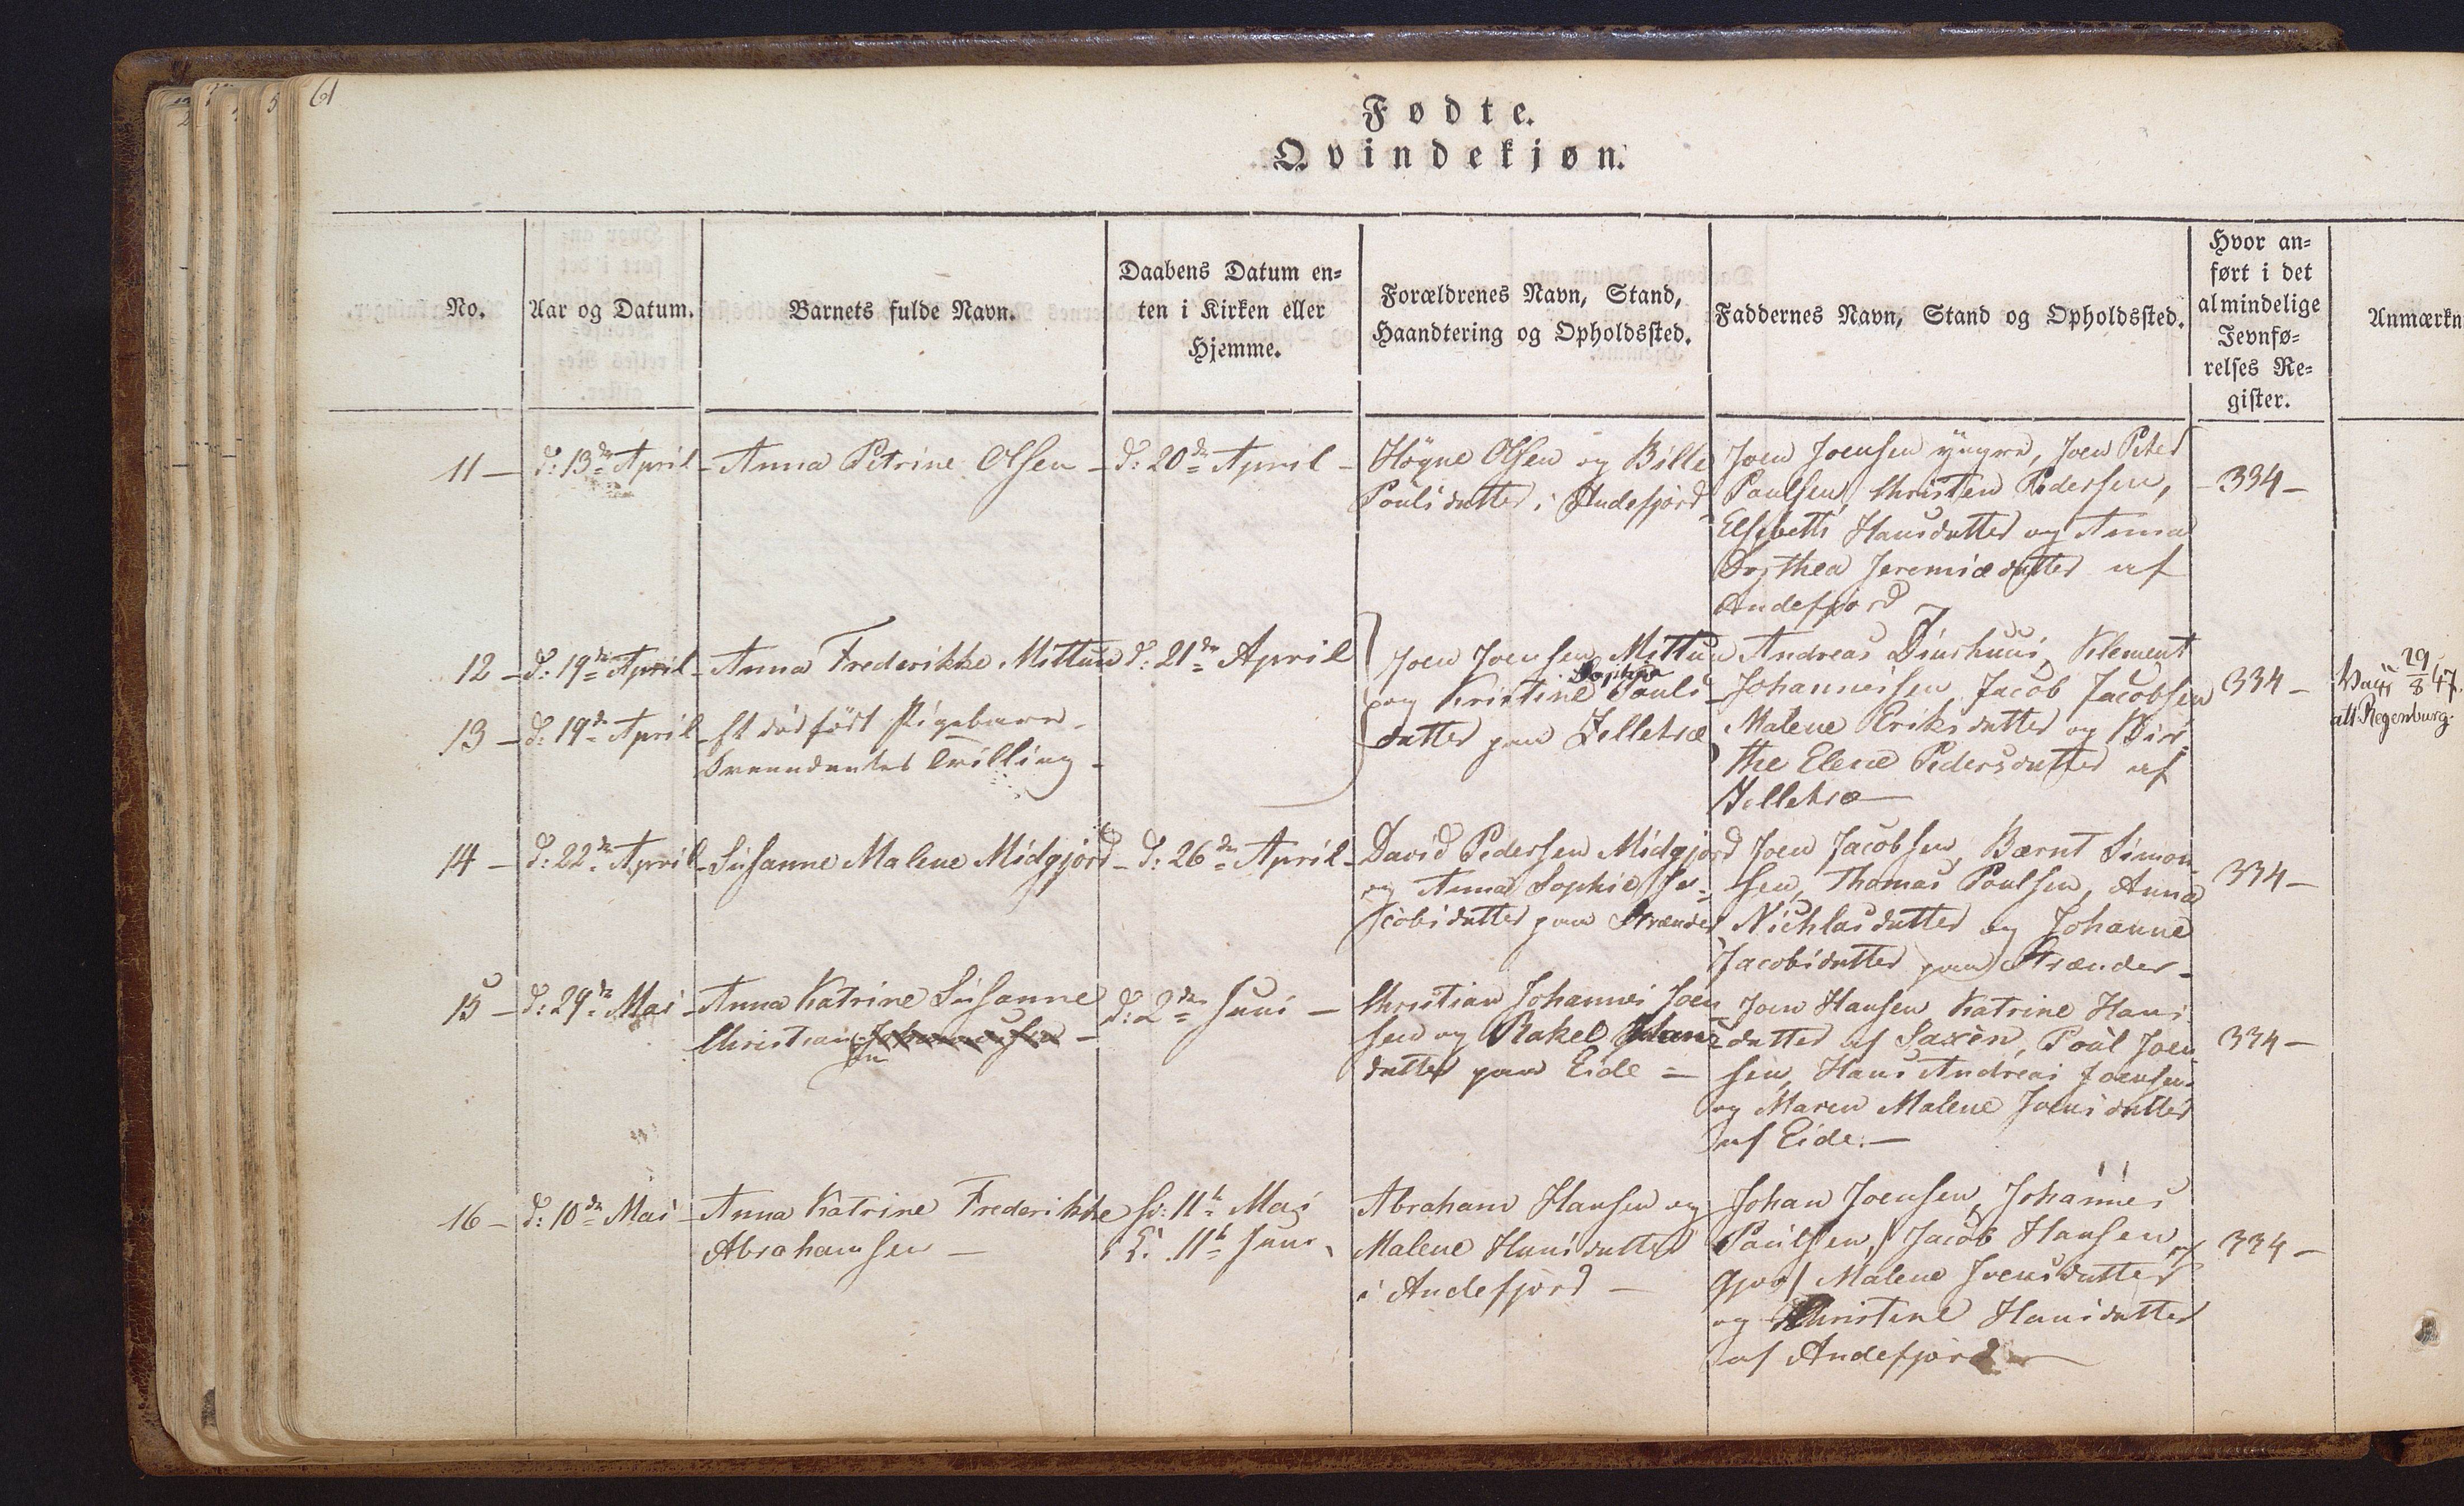 61
Fødte.
Qvindekjøn.
No.
Aar og Datum.
Barnets fulde Navn.
Daabens Datum en-
ten i Kirken eller
Hjemme.
Forældrenes Navn, Stand,
Haandtering og Opholdssted.
Faddernes Navn, Stand og Opholdssted.
Hvor an-
ført i det
almindelige
Jevnfø-
relses Re-
gister.
Anmærkn
11 –
d: 13de April –
Anna Petrine Olsen –
d: 20de April –
Høgne Olsen og Bille
Pouls datter i Andefjord
Joen Joensen yngre, Joen Peter
Paulsen, Christen Pedersen,
Elsebeth Hansdatter og Anna
Dorthea Jeremiædatter af
Andefjord
– 334 –
12 –
d: 19de April –
Anna Frederikke Mittun
d: 21de April
Joen Joensen Mittun
Sophie
og Kristine Pouls
datter paa Zelletræ
Andreas Dinhuus, Klement
Johannessen, Jacob Jacobsen
Malene Eriksdatter og Bir-
the Elene Pedersdatter af
334 –
29/8 47
att. Regenburg.
13 –
d: 19de April –
Et dødfødt Pigebarn.
Tvilling –
14 –
d: 22de April –
Susanne Malene Midgjord –
d: 26de April –
David Pedersen Midgjord
og Anna Sophie Ja-
cobsdatter paa Strænder
Joen Jacobsen, Bærnt Simon
sen, Thomas Poulsen, Anna
Nichlasdatter og Johanne
Jacobsdatter paa Strænder –
334 –
15 –
d: 29de Mai –
Anna Katrine Susanne
Christian Johannessen –
d: 2den Juni –
Christian Johannes Joen
sen og Rakel
datter paa Eide =
Joen Hansen, Katrine Hans
datter af Saxen, Poul Joen
sen, Hans Andreas Joensen
og Maren Malene Joensdatter
af Eide. –
334 –
16 –
d: 10de Mai –
Anna Katrine Frederikke
Abrahamsen –
H: 11te Mai
K: 11te Juni
Abraham Hansen og
Malene Hansdatter
i Andefjord –
Johan Joensen, Johannes
Paulsen, Jacob Hansen af
Gjov, Malene Joensdatter
og Christine Hansdatter
af Andefjord –
334 –